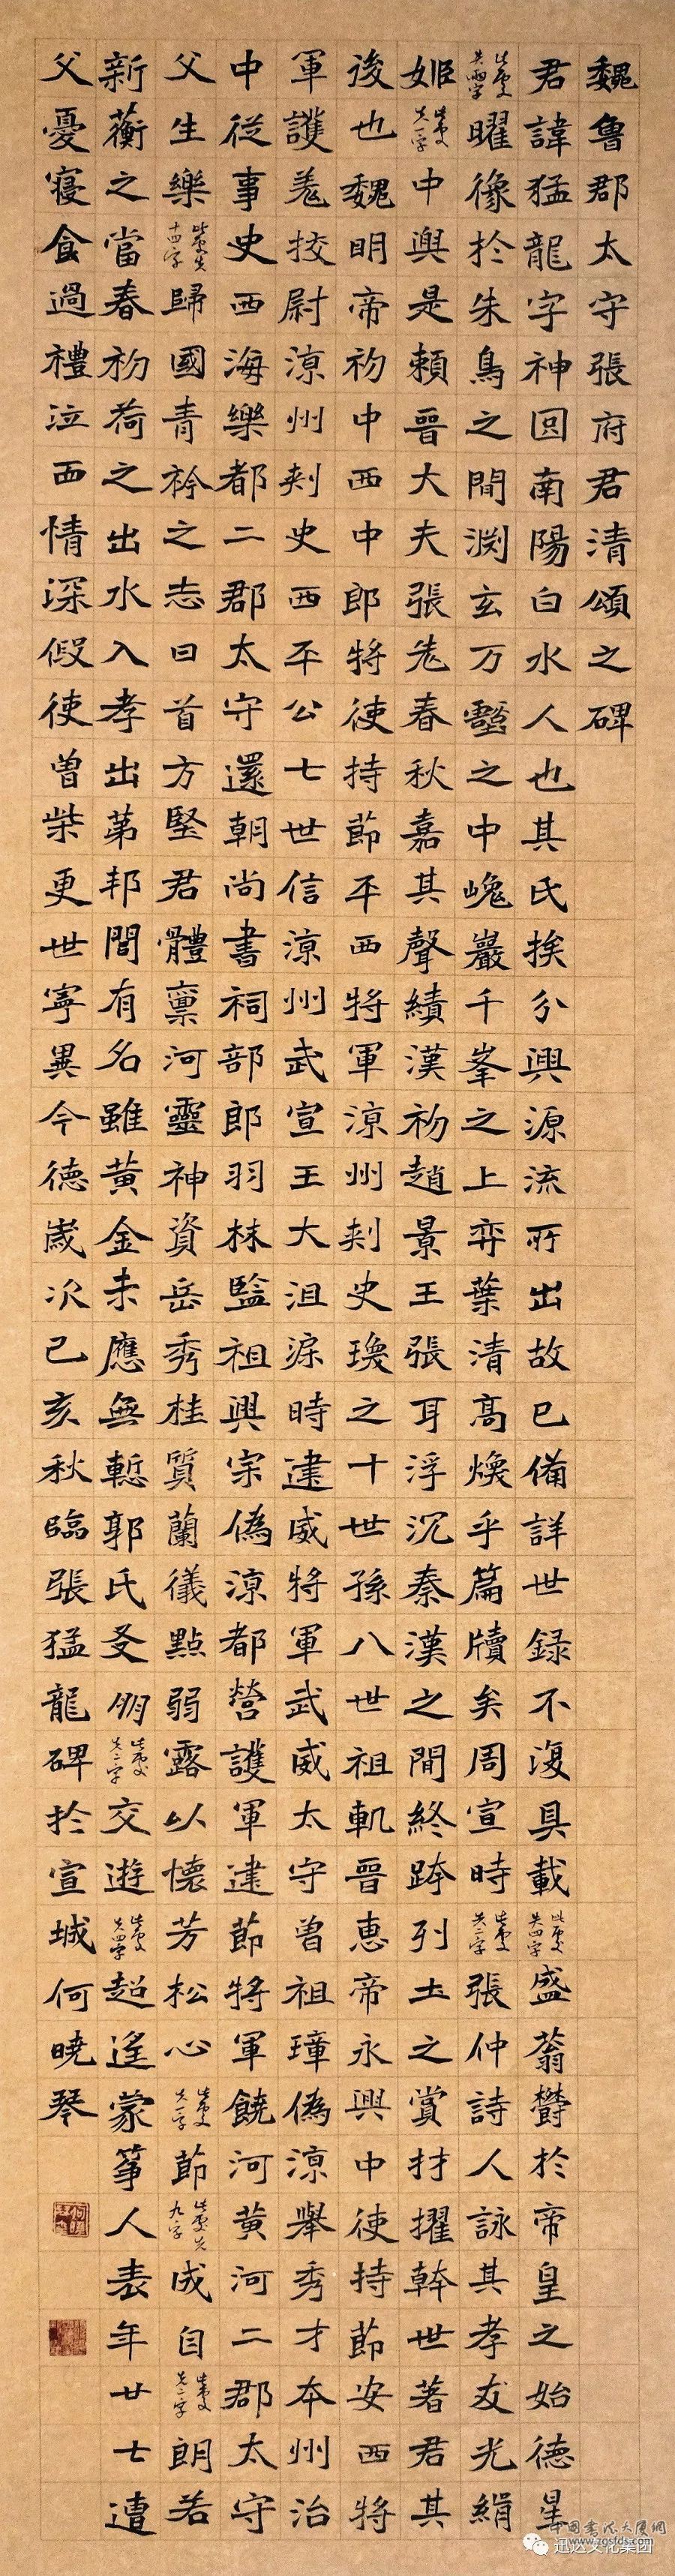 魏魯郡太守張府君清頌之碑
君諱猛龍字神囧南陽白水人也其氏族分興源流所出故已備詳世録不復具載此處文失四字盛蓊欝於帝皇之始德星
此處文失兩字曜像於朱鳥之間渕玄万壑之中巉巖千峯之上弈葉清高煥乎篇牘矣周宣時此處文失二字張仲詩人詠其孝友光緝
姬此處文失一字中興是賴晉大夫張老春秋嘉其聲績漢初趙景王張耳浮沉秦漢之間終跨列土之賞材擢幹世著君其
後也魏明帝初中西中郎將使持節平西將軍涼州刺史瑍之十世孫八世祖軌晉惠帝永興中使持節安西將
軍護羗挍尉涼州刺史西平公七世信涼州武宣王大沮渠時建威將軍武威太守曾祖璋偽涼舉秀才本州治
中從事史西海樂都二郡太守還朝尚書祠部郎羽林監祖興宗偽涼都營護軍建節將軍饒河黃河二郡太守
父生樂此處失十四字歸國青衿之志日首方堅君體禀河靈神資岳秀桂質蘭儀點弱露以懷芳松心此處文失一字節此處失九字成自此處文失二字朗若
新蘅之當春初荷之出水入孝出第邦閭有名雖黃金未應無慙郭氏友朋此處文失二字交遊此處文失四字超遙蒙筝人表年廿七遭
父憂寢食過禮泣血情深假使曾柴更世寧異今德歲次己亥秋臨張猛龍碑於宣城何曉琴
中国书法大厦网
www.zgsfds.com
迅达文化集团